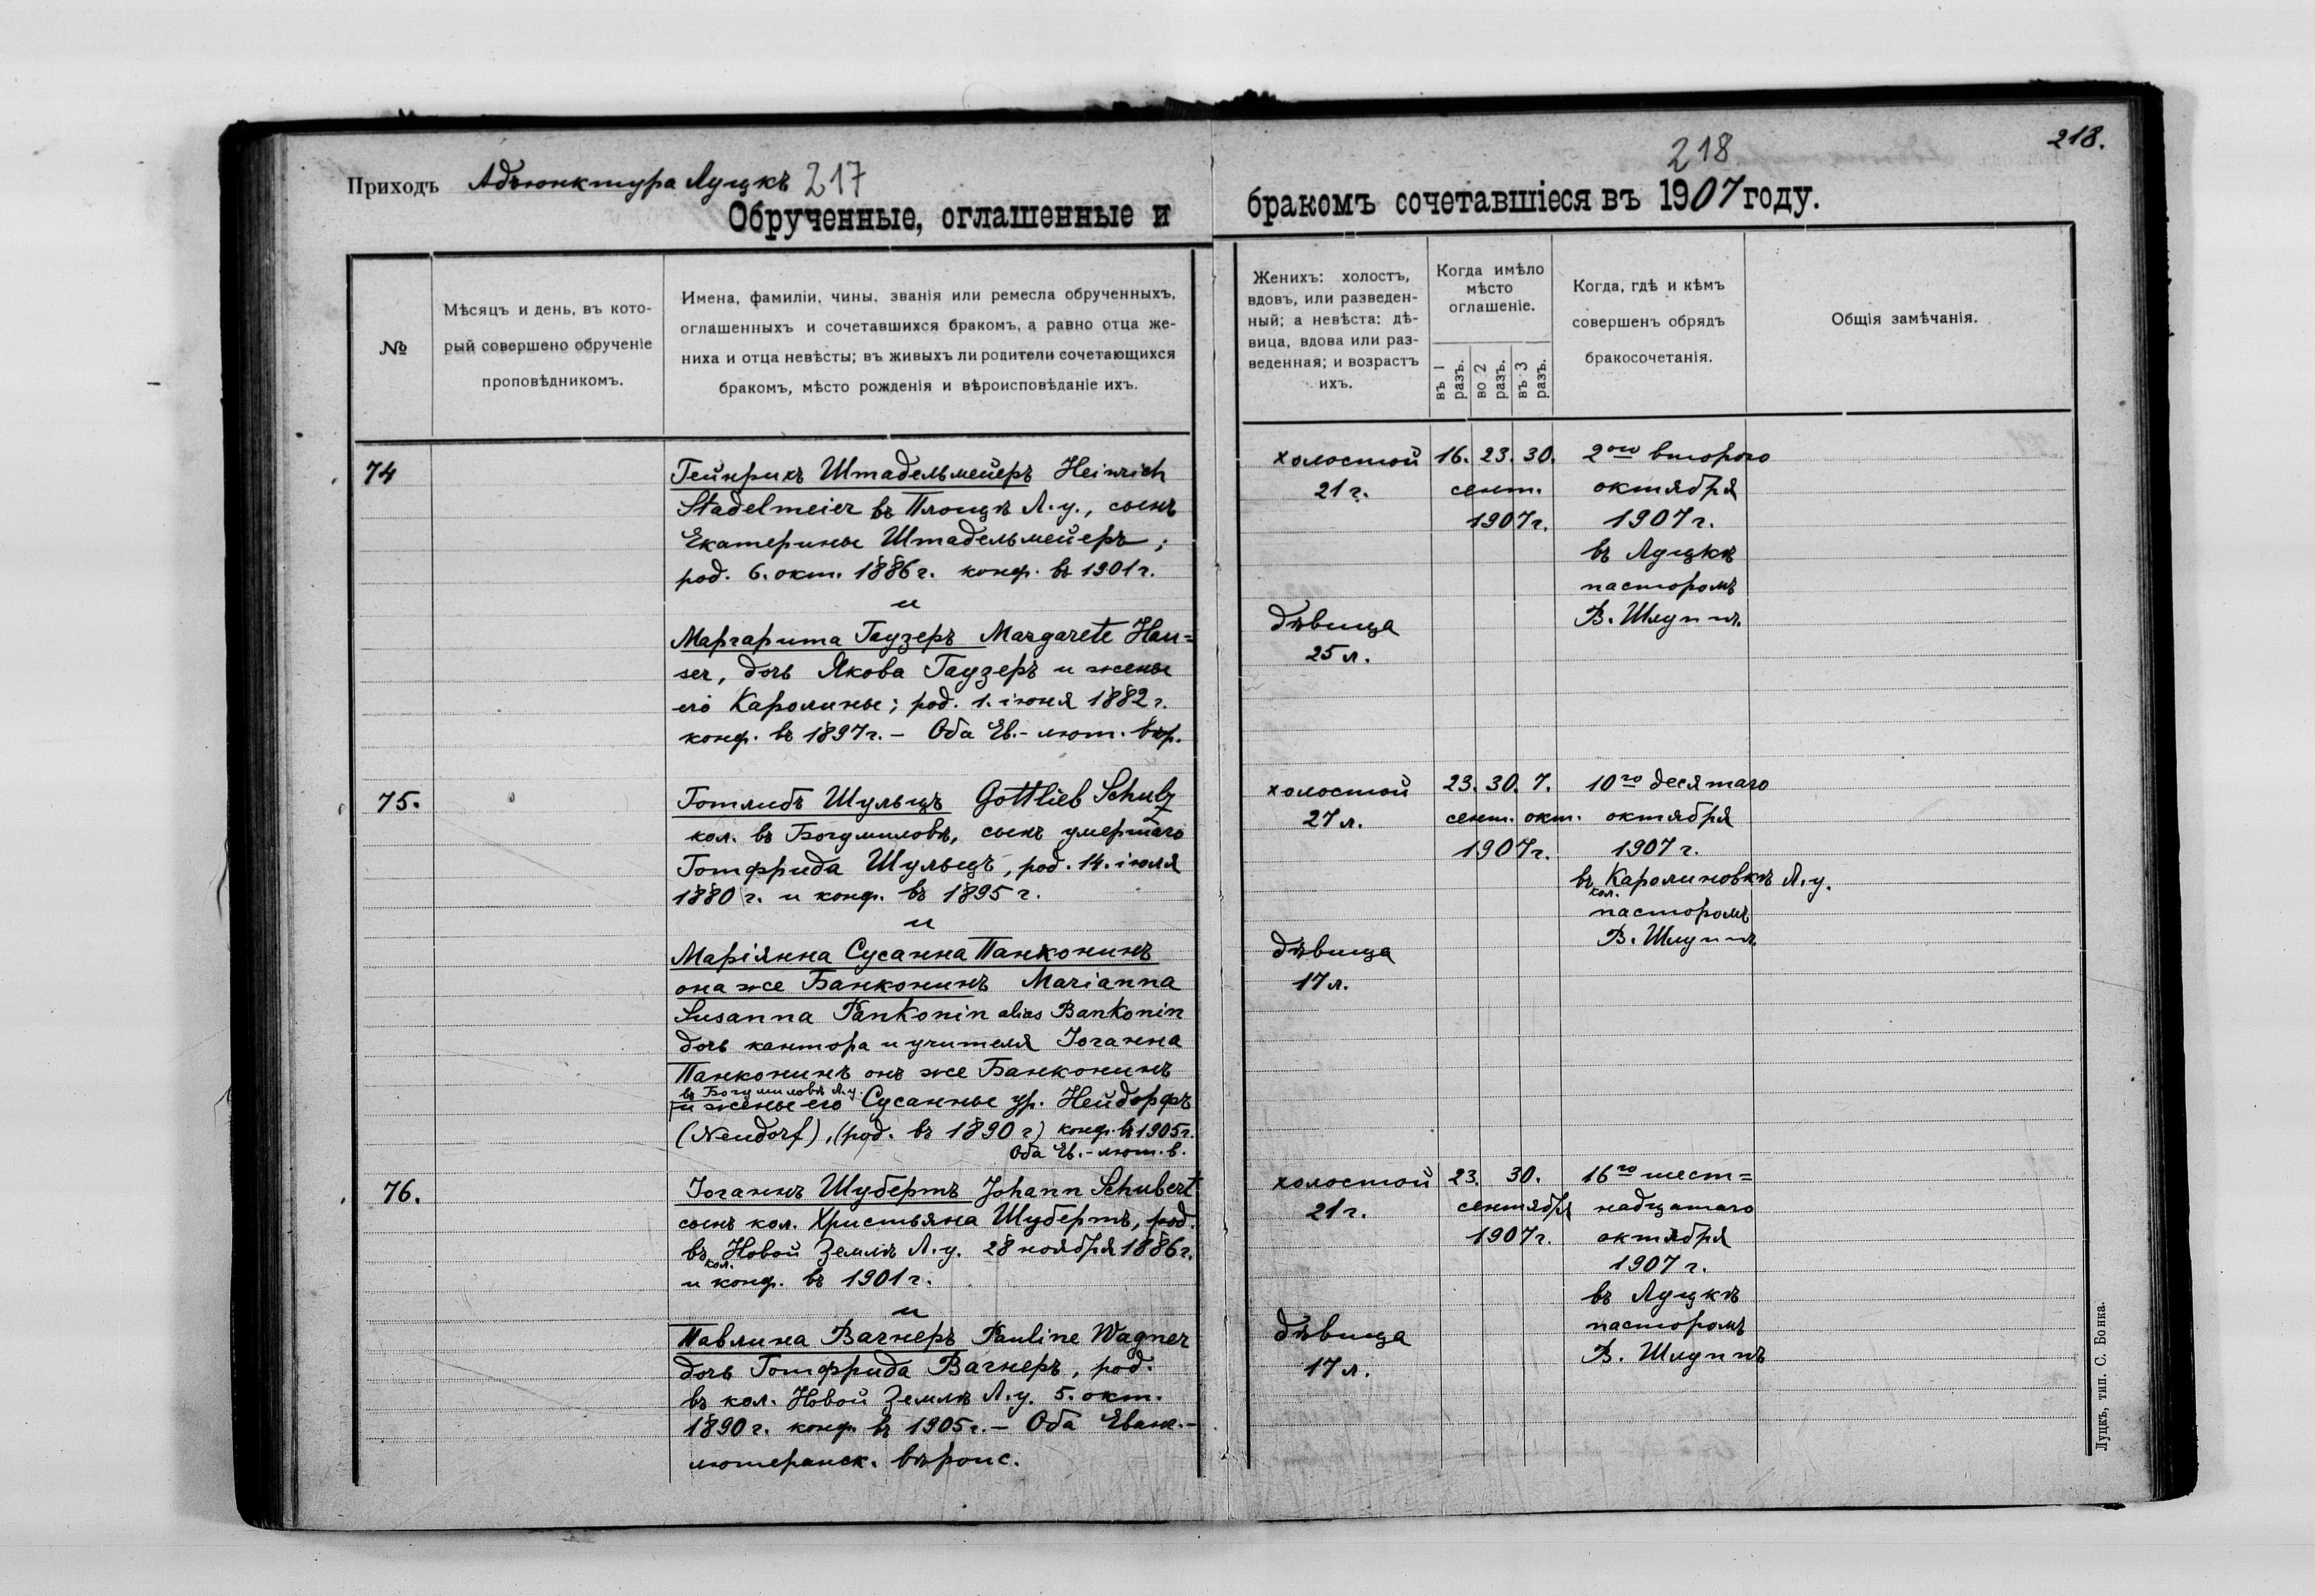 Приходъ Адъюнктура Луцкъ 217
Обрученные, оглашенные и
№
Мѣсяцъ и день, въ кото-
рый совершено обрученіе
проповѣдникомъ.
Имена, фамиліи, чины, званія или ремесла обрученныхъ,
оглашенныхъ и сочетавшихся бракомъ, а равно отца же-
ниха и отца невѣсты; въ живыхъ ли родители сочетающихся
бракомъ, мѣсто рожденія и вѣроисповѣданіе ихъ.
74
Гейнрихъ Штадельмейеръ Heinrich
Stadelmeier въ Плоцкѣ Л.у., сынъ
Екатерины Штадельмейеръ;
род. 6. окт. 1886 г. конф. въ 1901 г.
и
Маргарита Гаузеръ Margarete Hau=
ser, дочь Якова Гаузеръ и жены
его Каролины; род. 1. іюня 1882 г.
конф. въ 1897 г. – Оба Ев.-лют. вѣр.
75.
Готлибъ Шульцъ Gottlieb Schulz
кол. въ Богумиловѣ, сынъ умершаго
Готфрида Шульцъ, род. 14. іюля
1880 г. и конф. въ 1895 г.
и
Маріянна Сусанна Панконинъ
она же Банконинъ Marianna
Susanna Pankonin alias Bankonin
дочь кантора и учителя Іоганна
Панконинъ онъ же Банконинъ
въ Богумиловѣ Л.у.
и жены его Сусанны ур. Нейдорфъ
(Neudorf), (род. въ 1890 г) конф. въ 1905 г.
Оба Ев.-лют. в.
76.
Іоганнъ Шубертъ Johann Schubert
сынъ кол. Христьяна Шубертъ, род.
въ кол. Новой Землѣ Л.у. 28 ноября 1886 г.
и конф. въ 1901 г.
и
Павлина Вагнеръ Pauline Wagner
дочь Готфрида Вагнеръ, род.
въ кол. Новой Землѣ Л.у. 5. окт.
1890 г. конф. въ 1905 г. – Оба Еванг.-
лютеранск. вѣроис.
218
218.
бракомъ сочетавшіеся въ 1907 году.
Женихъ: холостъ,
вдовъ, или разведен-
ный; а невѣста: дѣ-
вица, вдова или раз-
веденная; и возрастъ
ихъ.
Когда имѣло
мѣсто
оглашеніе.
въ 1 разъ.
во 2 разъ.
въ 3 разъ.
Когда, гдѣ и кѣмъ
совершенъ обрядъ
бракосочетанія.
Общія замѣчанія.
холостой 16. 23. 30. 2ого второго
21 г. сент. октября
1907 г. 1907 г.
въ Луцкѣ
пасторомъ
дѣвица В. Шлуппъ
25 л.
холостой 23. 30. 7. 10го десятаго
27 л. сент. окт. октября
1907 г. 1907 г.
въ кол. Каролиновкѣ Л.у.
пасторомъ
дѣвица В. Шлуппъ
17 л.
холостой 23. 30. 16го шест=
21 г. сентября надцатаго
1907 г. октября
1907 г.
въ Луцкѣ
дѣвица пасторомъ
17 л. В. Шлуппъ
Луцкъ, тип. С. Бонка.